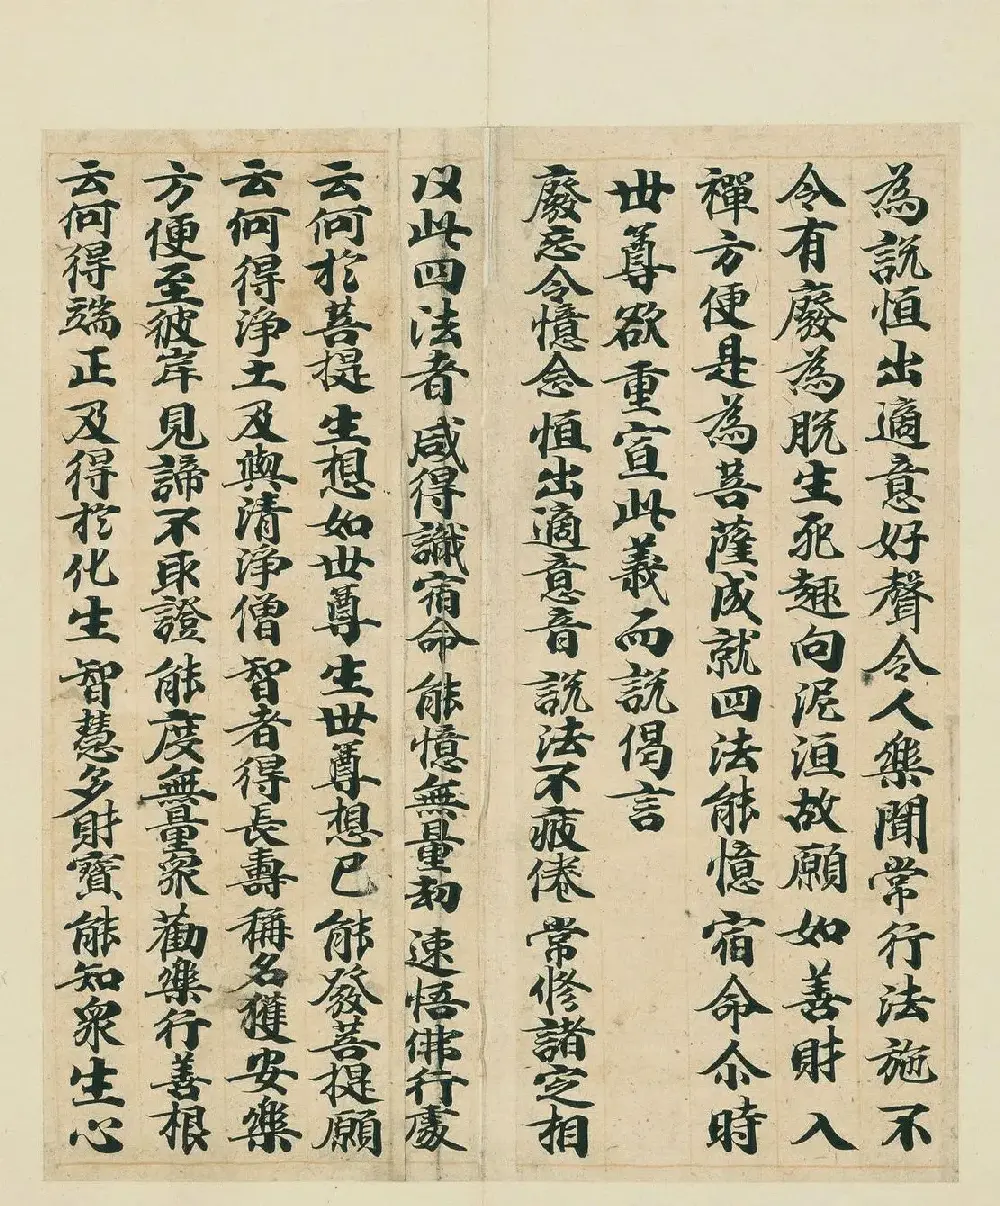 為說恒出適意好聲令人樂聞常行法施不
令有廢為脫生死趣向泥洹故願如善財入
禪方便是為菩薩成就四法能憶宿命尒時
世尊欲重宣此義而說偈言
廢忘令憶念 恒出適意音 說法不疲倦 常修諸定相
以此四法者 咸得識宿命 能憶無量劫 速悟佛行處
云何於菩提 生想如世尊 生世尊想已 能發菩提願
云何得淨土 及與清淨僧 智者得長壽 稱名獲安樂
方便至彼岸 見諦不取證 能度無量眾 勸樂行善根
云何得端正 及得於化生 智慧多財寶 能知眾生心